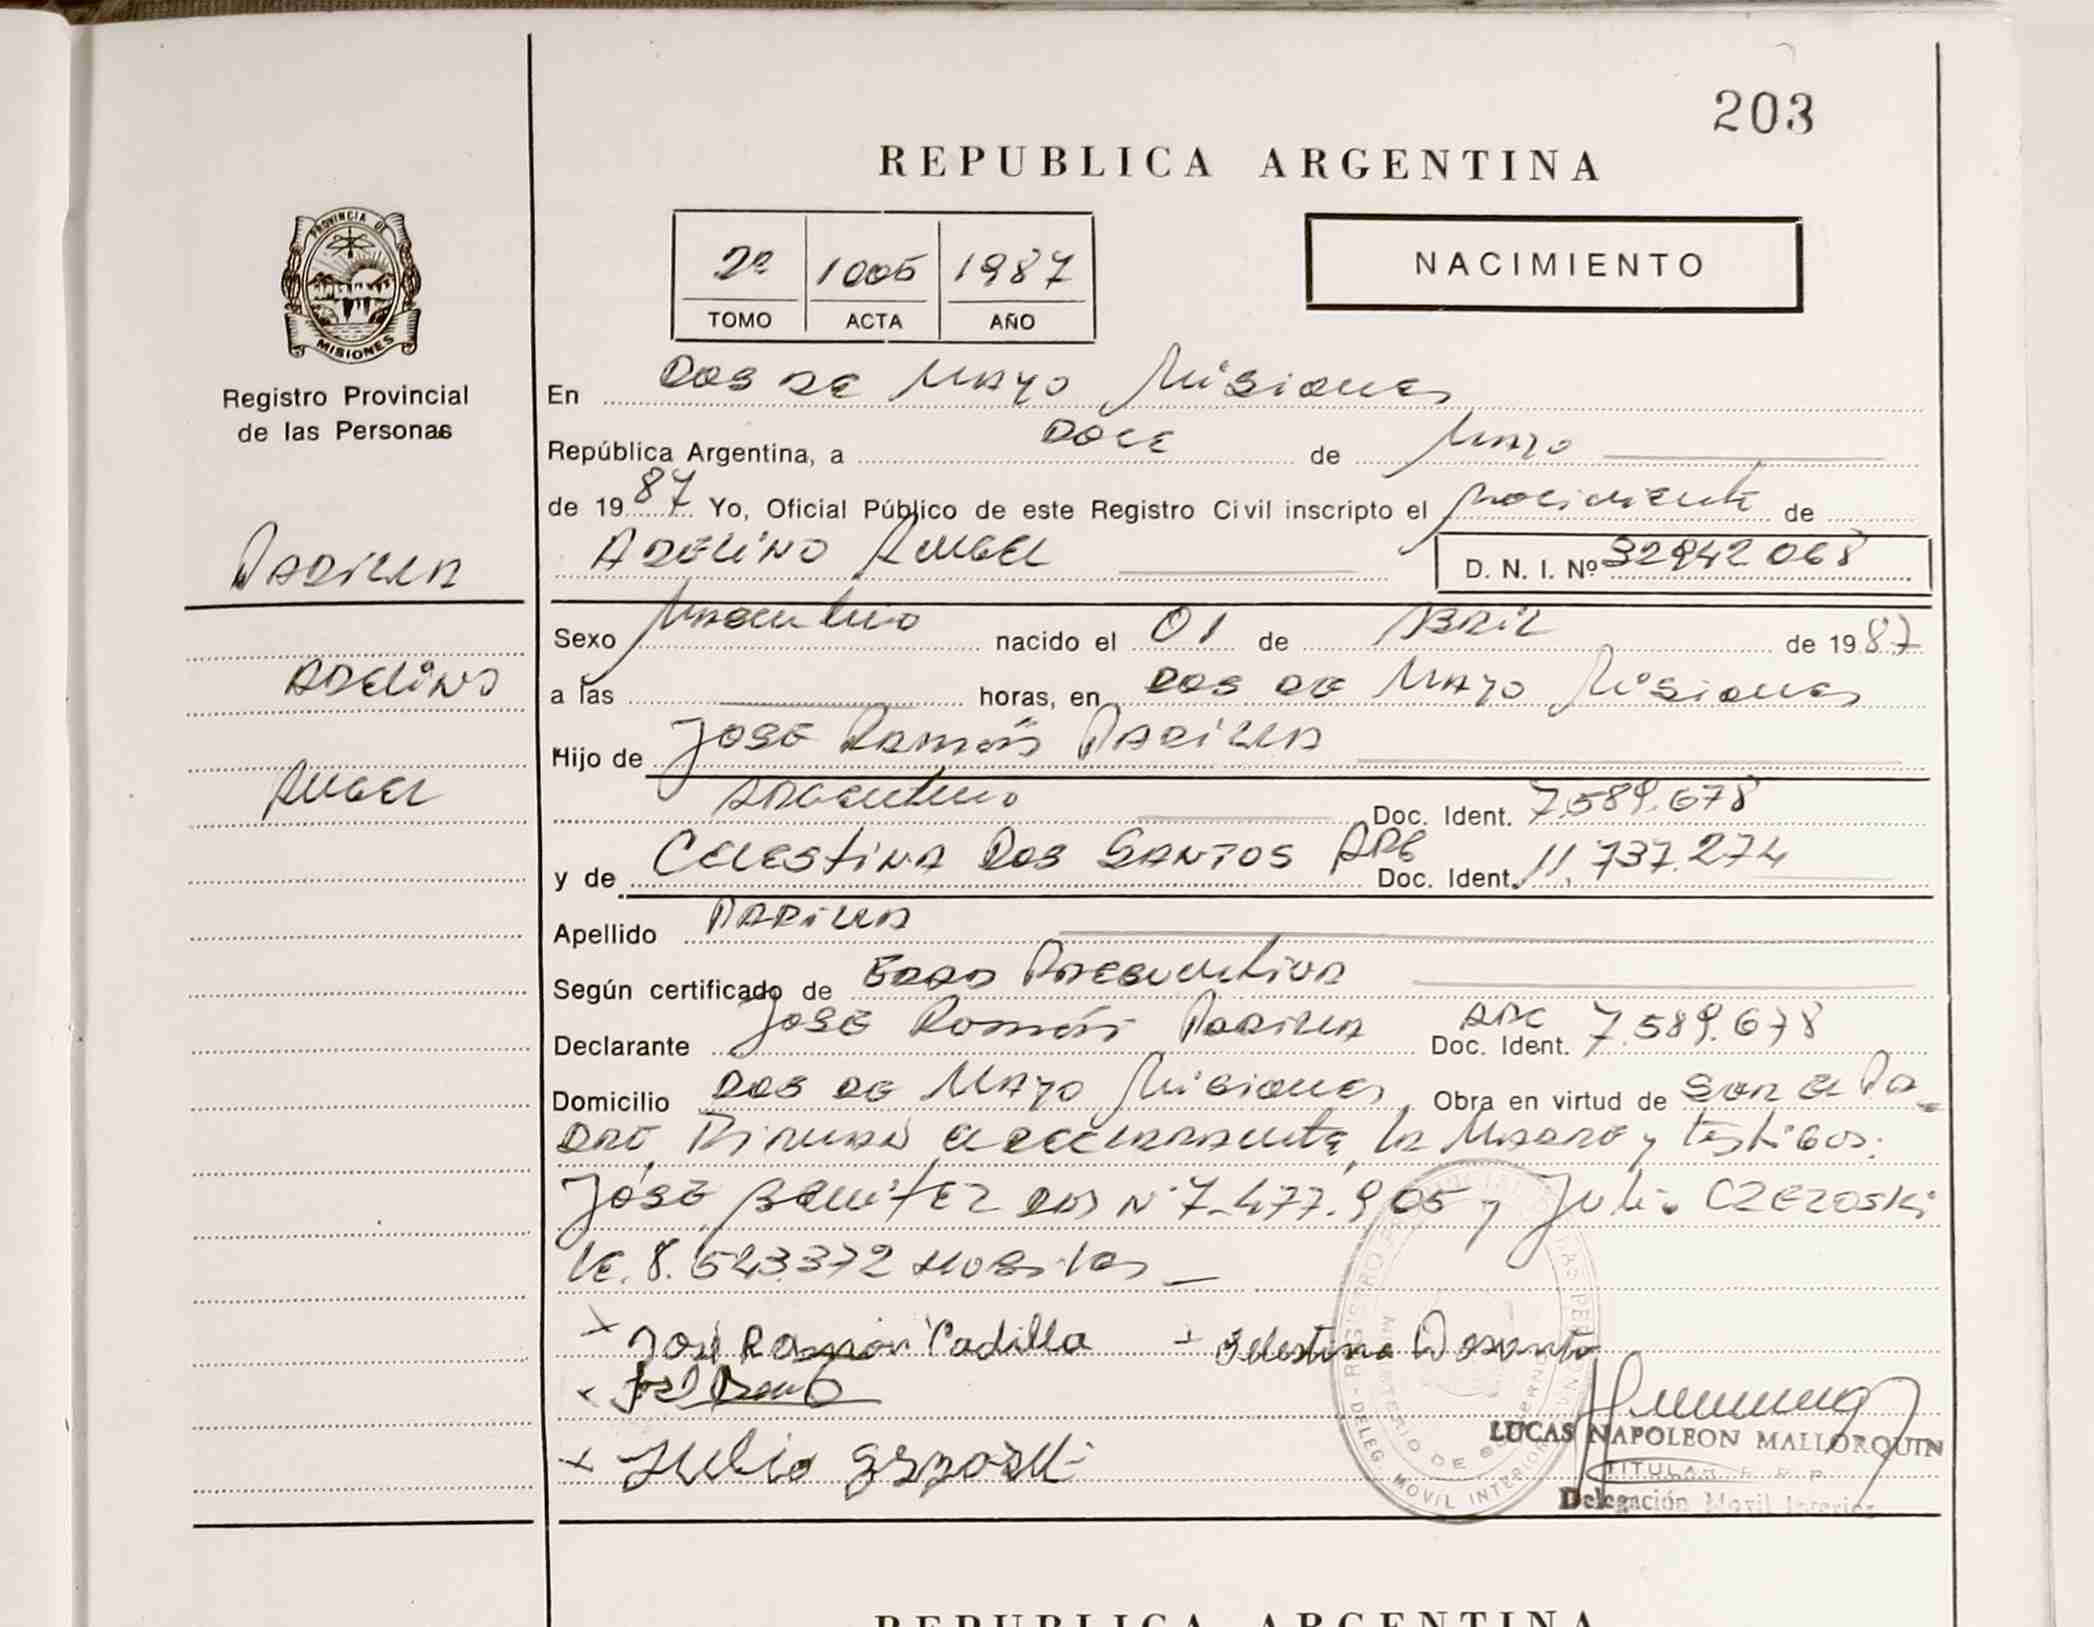 203
REPUBLICA ARGENTINA
2º 1005 1987
TOMO ACTA AÑO
NACIMIENTO
PROVINCIA DE
MISIONES
Registro Provincial
de las Personas
En Dos de Mayo Misiones
República Argentina, a Doce de Mayo
de 1987 Yo, Oficial Público de este Registro Civil inscripto el nacimiento de
Adelino Angel D. N. I. Nº 32942068
Padilla
Adelino
Angel
Sexo Masculino nacido el 01 de Abril de 1987
a las horas, en Dos de Mayo Misiones
Hijo de José Ramón Padilla
Argentino Doc. Ident. 7.589.678
y de Celestina Dos Santos Arg Doc. Ident. 11.737.274
Apellido Padilla
Según certificado de Edad Presuntiva
Declarante José Ramón Padilla Arg Doc. Ident. 7.589.678
Domicilio Dos de Mayo Misiones Obra en virtud de ser el Pa-
dre, Firman el declarante, la Madre y testigos:
José Benitez N° 7.477.905 y Julio Czezoski
LE. 8.523.372
x José Ramón Padilla + Selestina Dosanto
x Julio
REGISTRO PROVINCIAL DE LAS PERSONAS
MINISTERIO DE GOBIERNO
DELEG. MOVIL INTERIOR
LUCAS NAPOLEON MALLORQUIN
TITULAR
Delegación Movil Interior
REPUBLICA ARGENTINA